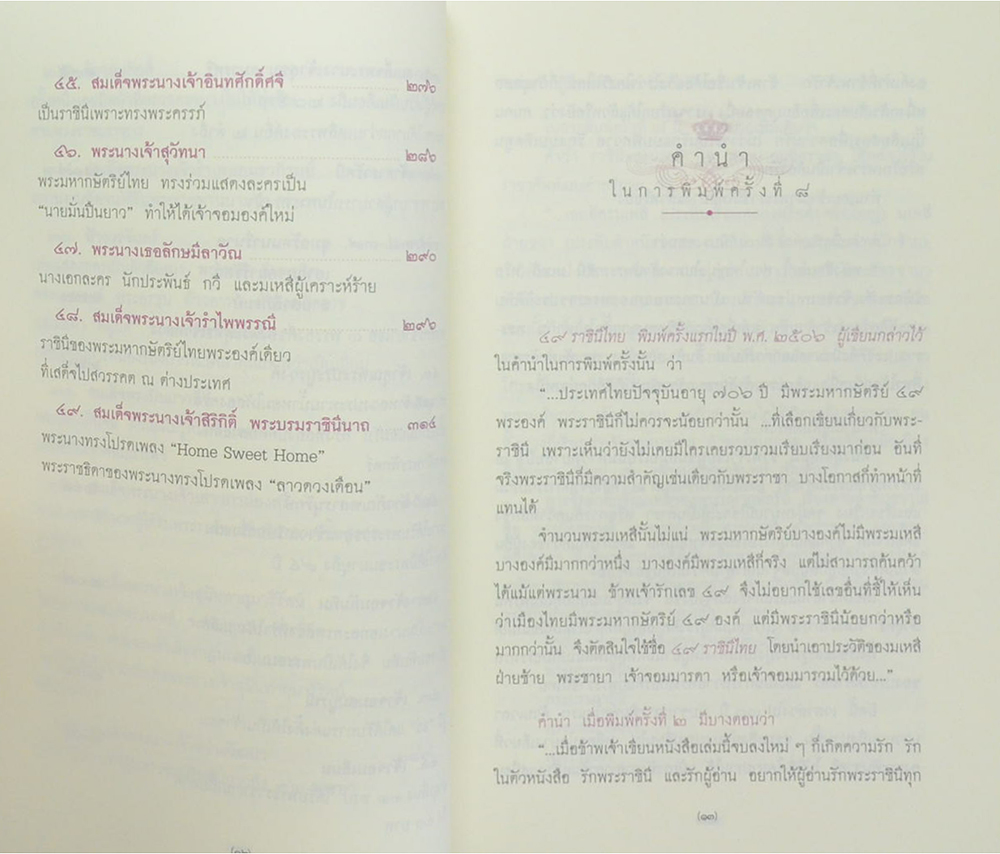 ๔๕. สมเด็จพระนางเจ้าอินทศักดิ์ศจี ๒๗๖
เป็นราชินีเพราะทรงพระครรภ์
๔๖. พระนางเจ้าสุวัทนา ๒๘๖
พระมหากษัตริย์ไทย ทรงร่วมแสดงละครเป็น
“นายมั่นปืนยาว” ทำให้ได้เจ้าจอมองค์ใหม่
๔๗. พระนางเธอลักษมีลาวัณ ๒๙๐
นางเอกละคร นักประพันธ์ กวี และมเหสีผู้เคราะห์ร้าย
๔๘. สมเด็จพระนางเจ้ารำไพพรรณี ๒๙๖
ราชินีของพระมหากษัตริย์ไทยพระองค์เดียว
ที่เสด็จไปสวรรคต ณ ต่างประเทศ
๔๙. สมเด็จพระนางเจ้าสิริกิติ์ พระบรมราชินีนาถ ๓๑๔
พระนางทรงโปรดเพลง “Home Sweet Home”
พระราชธิดาของพระนางทรงโปรดเพลง “ลาวดวงเดือน”
คำนำ
ในการพิมพ์ครั้งที่ ๘
๔๙ ราชินีไทย พิมพ์ครั้งแรกในปี พ.ศ. ๒๕๐๖ ผู้เขียนกล่าวไว้
ในคำนำในการพิมพ์ครั้งนั้น ว่า
“...ประเทศไทยปัจจุบันอายุ ๗๐๖ ปี มีพระมหากษัตริย์ ๔๙
พระองค์ พระราชินีก็ไม่ควรจะน้อยกว่านั้น ...ที่เลือกเขียนเกี่ยวกับพระ-
ราชินี เพราะเห็นว่ายังไม่เคยมีใครเคยรวบรวมเรียบเรียงมาก่อน อันที่
จริงพระราชินีก็มีความสำคัญเช่นเดียวกับพระราชา บางโอกาสก็ทำหน้าที่
แทนได้
จำนวนพระมเหสีนั้นไม่แน่ พระมหากษัตริย์บางองค์ไม่มีพระมเหสี
บางองค์มีมากกว่าหนึ่ง บางองค์มีพระมเหสีก็จริง แต่ไม่สามารถค้นคว้า
ได้แม้แต่พระนาม ข้าพเจ้ารักเลข ๔๙ จึงไม่อยากใช้เลขอื่นที่ชี้ให้เห็น
ว่าเมืองไทยมีพระมหากษัตริย์ ๔๙ องค์ แต่มีพระราชินีน้อยกว่าหรือ
มากกว่านั้น จึงตัดสินใจใช้ชื่อ ๔๙ ราชินีไทย โดยนำเอาประวัติของมเหสี
ฝ่ายซ้าย พระชายา เจ้าจอมมารดา หรือเจ้าจอมมารวมไว้ด้วย...”
คำนำ เมื่อพิมพ์ครั้งที่ ๒ มีบางตอนว่า
“...เมื่อข้าพเจ้าเขียนหนังสือเล่มนี้จบลงใหม่ ๆ ก็เกิดความรัก รัก
ในตัวหนังสือ รักพระราชินี และรักผู้อ่าน อยากให้ผู้อ่านรักพระราชินีทุก
(๑๓)